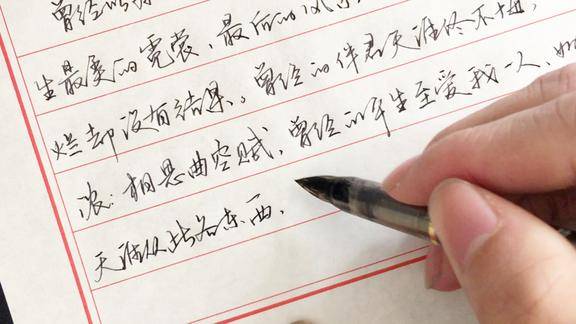 曾经的
生最美的霓裳、最后的
烂却没有结果、。曾经的伴君天涯终不悔,
浪;相思曲空赋,曾经的年生至爱我一人、如
天涯从此各东西、